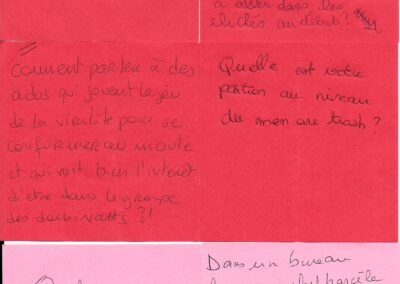 à aller dans les
clichés au début?
Comment parler à des
ados qui jouent le jeu
de la virilité pour se
conformer au moule
et qui voit bien l'intérêt
d'être dans le groupe
des dominants ?!
Quelle est votre
position au niveau
du men are trash?
Dans un bureau